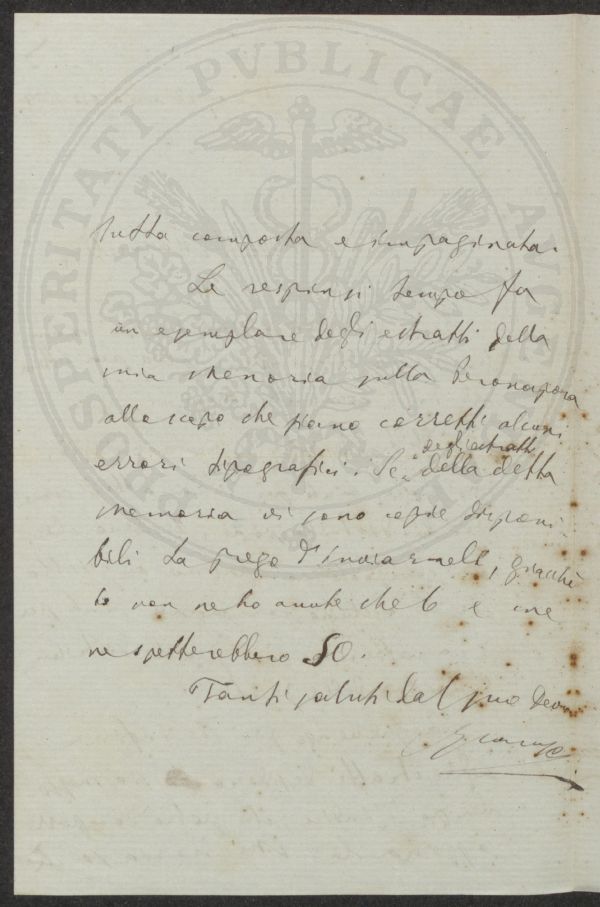 PROSPERITATI PUBLICAE AUGE
tutta composta e impaginata.
Le respinsi tempo fa
un esemplare degli estratti della
mia memoria sulla Peronospora
allo scopo che siano corretti alcuni
errori tipografici. Se degli estratti della detta
memoria vi sono copie disponi
bili La prego d'inviarmele, giacchè
io non ne ho avute che 6 e me
ne spetterebbero 50.
Tanti saluti dal suo